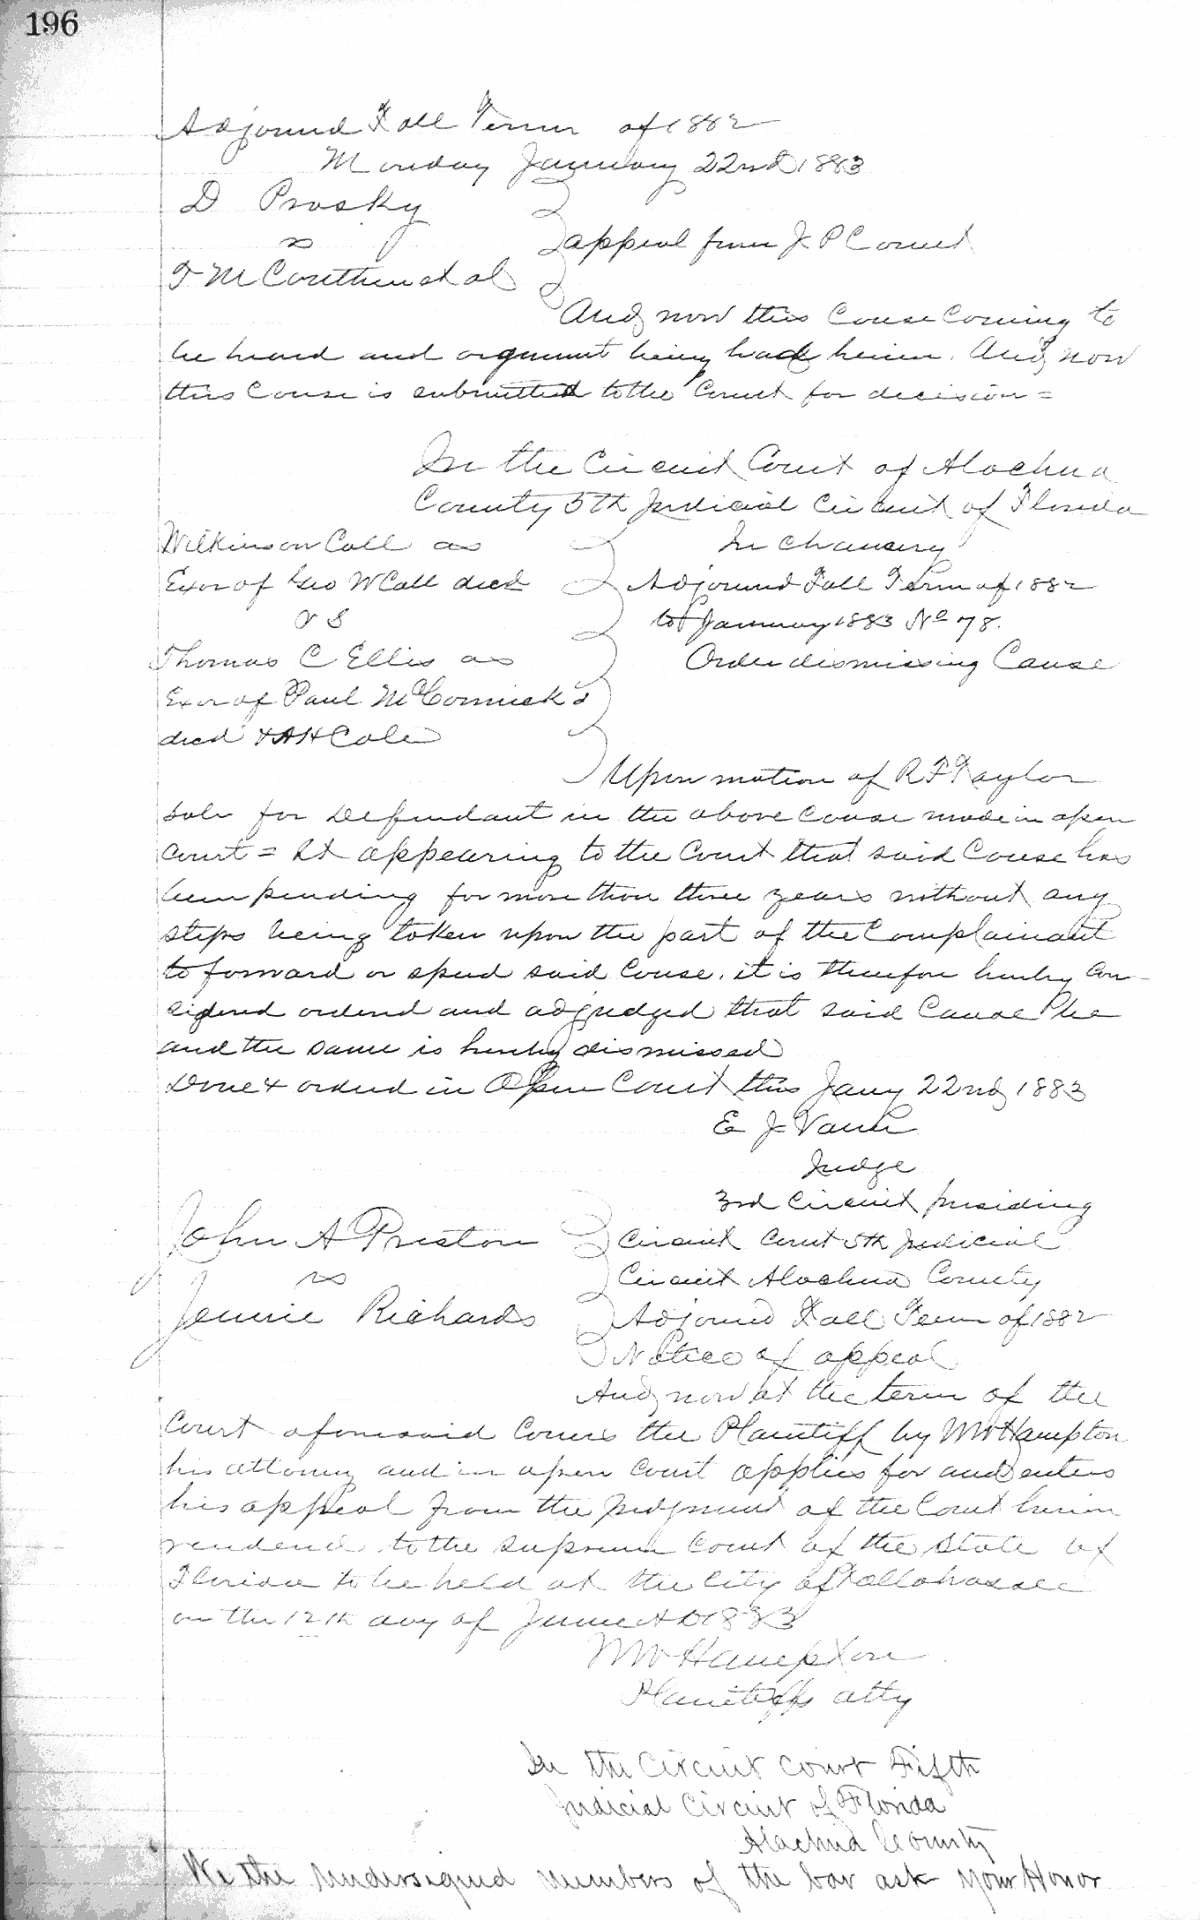 196
Adjourned Fall Term of 1882
Monday January 22nd 1883
D Prosky
vs
appeal from J P Court
T M Cauthen et al
And now this Cause Coming to
be heard and argument being had herein. And now
this Cause is submitted to the Court for decision =
In the Circuit Court of Alachua
County 5th Judicial Circuit of Florida
Wilkinson Call as
In Chancery
Exor of Geo W Call decd
Adjourned Fall Term of 1882
VS
to January 1883 No 78.
Thomas C Ellis as
Order dismissing Cause
Exor of Paul McCormick's
decd & A H Cole
Upon motion of R F Taylor
Solr for Defendant in the above Cause made in open
Court = It appearing to the Court that said Cause has
been pending for more than three years without any
steps being taken upon the part of the Complainant
to forward or speed said Cause. it is therefore hereby Con-
sidered ordered and adjudged that said Cause be
and the same is hereby dismissed
Done & ordered in Open Court this Jany 22nd 1883
E J Vann
Judge
3rd Circuit presiding
John A Preston
Circuit Court 5th Judicial
vs
Circuit Alachua County
Jennie Richards
Adjourned Fall Term of 1882
Notice of appeal
And now at the term of the
Court aforesaid Comes the Plaintiff by Hampton
his attorney and in open Court applies for and enters
his appeal from the Judgment of the Court herein
rendered to the Supreme Court of the State of
Florida to be held at the City of Tallahassee
on the 12th day of June A D 1883
Hampton
Plaintiffs atty
In the Circuit Court Fifth
Judicial Circuit of Florida
Alachua County
We the undersigned members of the bar ask your Honor